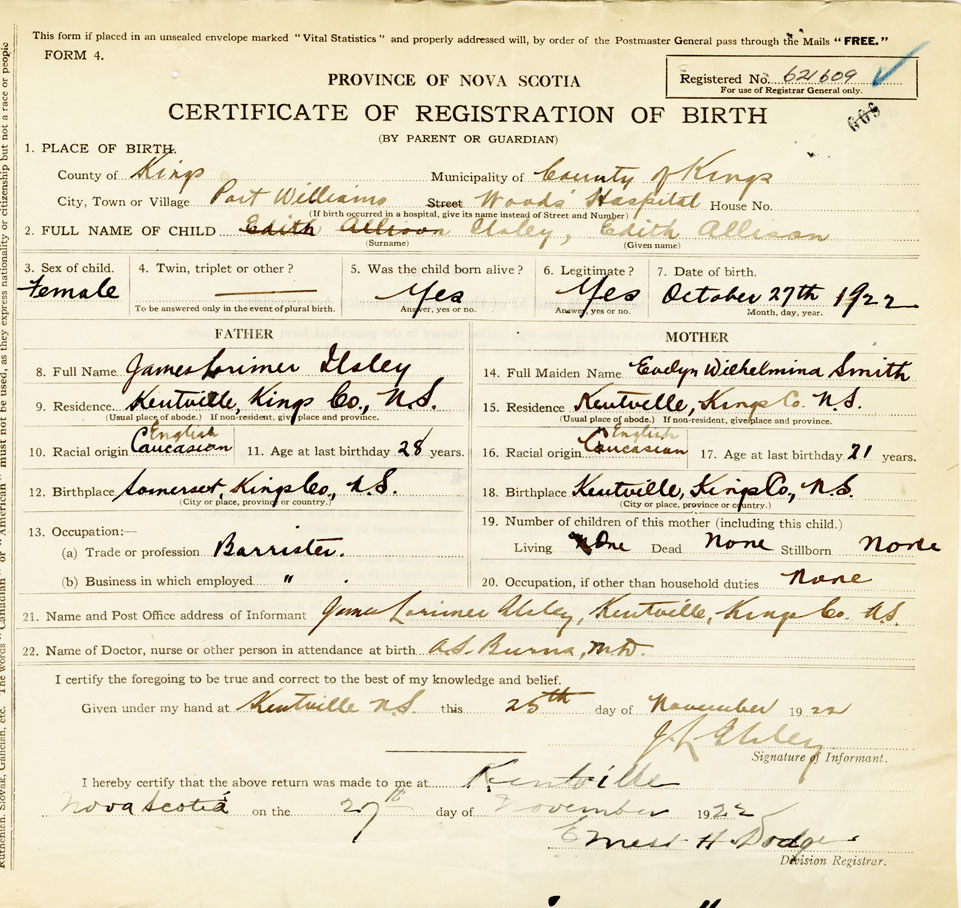 This form if placed in an unsealed envelope marked "Vital Statistics" and properly addressed will, by order of the Postmaster General pass through the Mails "FREE."
FORM 4.
PROVINCE OF NOVA SCOTIA
Registered No. 621609
For use of Registrar General only.
609
CERTIFICATE OF REGISTRATION OF BIRTH
(BY PARENT OR GUARDIAN)
1. PLACE OF BIRTH.
County of Kings Municipality of County of Kings
City, Town or Village Port Williams Street Woods' Hospital House No.
(If birth occurred in a hospital, give its name instead of Street and Number)
2. FULL NAME OF CHILD Edith Allison Ilsley, Edith Allison
(Surname) (Given name)
3. Sex of child. 4. Twin, triplet or other? 5. Was the child born alive? 6. Legitimate? 7. Date of birth.
Female Yes Yes October 27th 1922
To be answered only in the event of plural birth. Answer, yes or no. Answer, yes or no. Month, day, year.
FATHER MOTHER
8. Full Name James Lorimer Ilsley 14. Full Maiden Name Evelyn Wilhelmina Smith
9. Residence Kentville, Kings Co., N.S. 15. Residence Kentville, Kings Co. N.S.
(Usual place of abode.) If non-resident, give place and province. (Usual place of abode.) If non-resident, give place and province.
English English
10. Racial origin Caucasian 11. Age at last birthday 28 years. 16. Racial origin Caucasian 17. Age at last birthday 21 years.
12. Birthplace Somerset, Kings Co., N.S. 18. Birthplace Kentville, Kings Co., N.S.
(City or place, province or country.) (City or place, province or country.)
13. Occupation:— 19. Number of children of this mother (including this child.)
(a) Trade or profession Barrister. Living One Dead None Stillborn None
(b) Business in which employed " . 20. Occupation, if other than household duties None
21. Name and Post Office address of Informant James Lorimer Ilsley, Kentville, Kings Co. N.S.
22. Name of Doctor, nurse or other person in attendance at birth A.S. Burns, M.D.
I certify the foregoing to be true and correct to the best of my knowledge and belief.
Given under my hand at Kentville N.S. this 25th day of November 1922
J L Ilsley
Signature of Informant.
I hereby certify that the above return was made to me at Kentville
Nova Scotia on the 27th day of November 1922
Ernest H Dodge
Division Registrar.
Ruthenian, Slovak, Galician, etc. The words "Canadian" or "American" must not be used, as they express nationality or citizenship but not a race or people